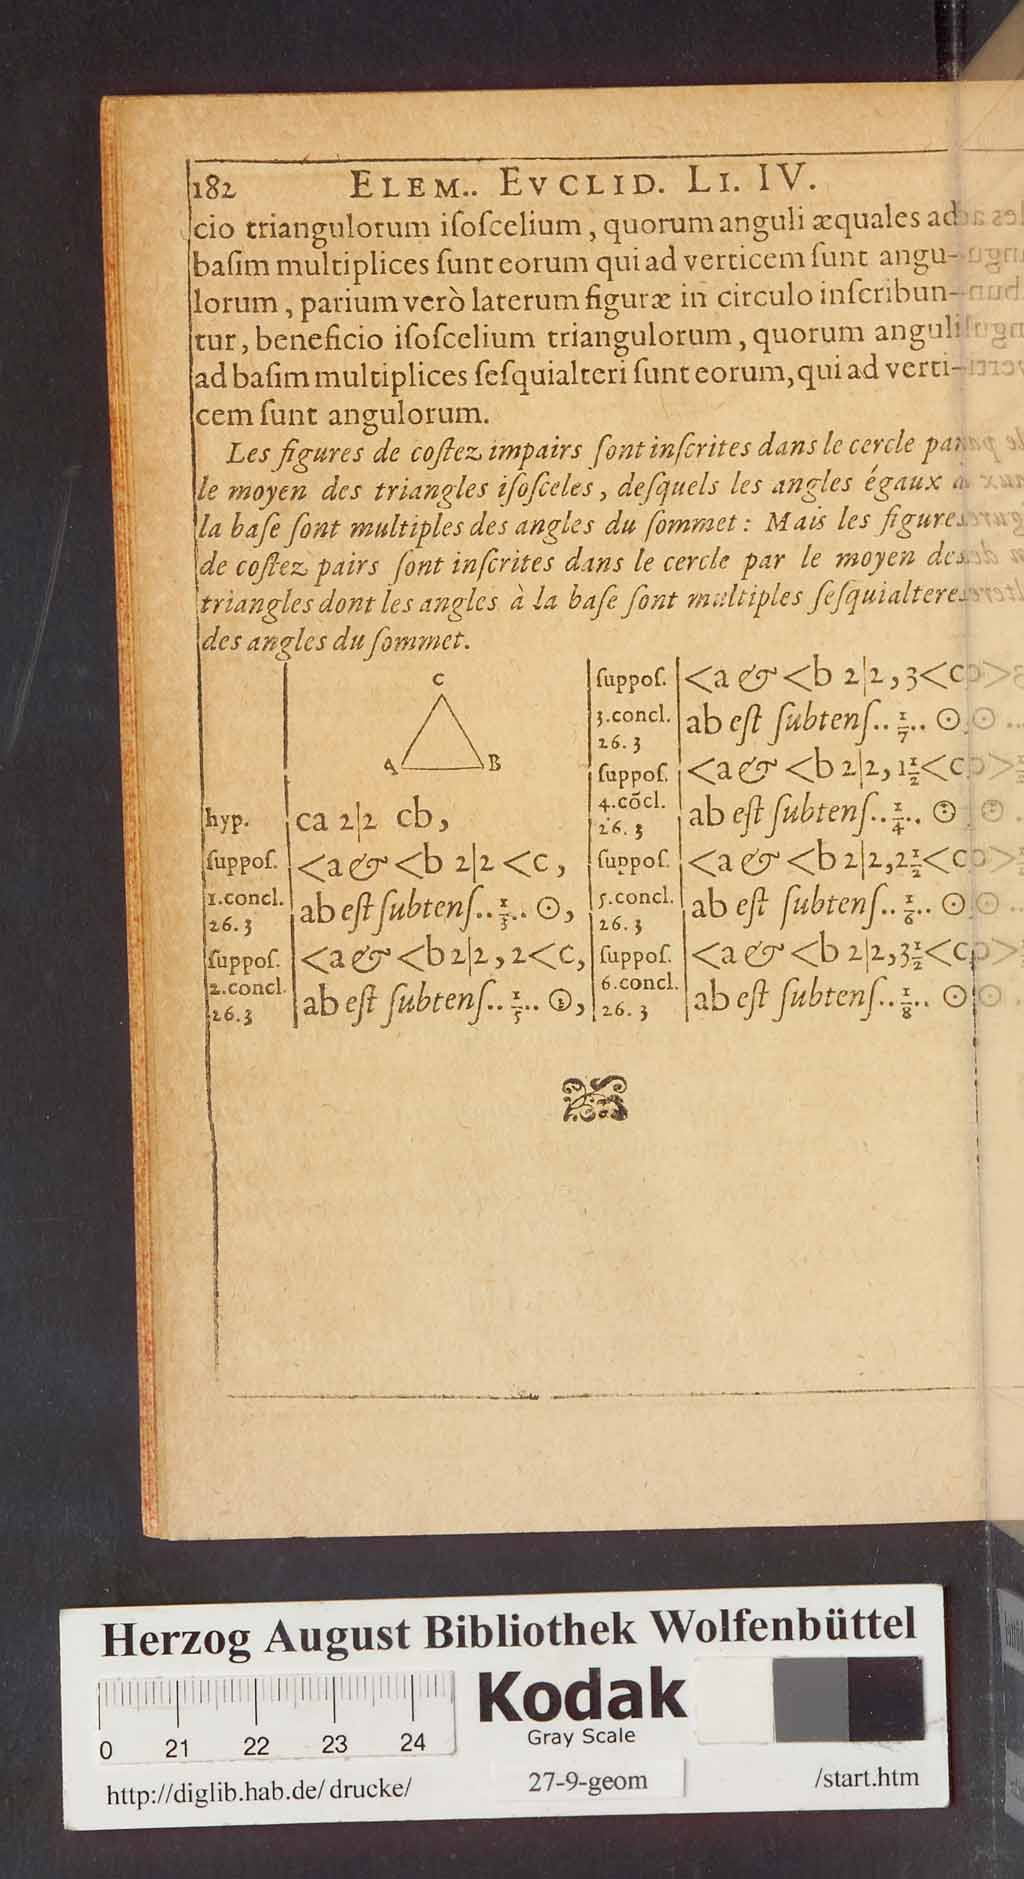 182 ELEM.. EVCLID. LI. IV.
cio triangulorum iſoſcelium, quorum anguli æquales ad
baſim multiplices ſunt eorum qui ad verticem ſunt angu-
lorum, parium verò laterum figuræ in circulo inſcribun-
tur, beneficio iſoſcelium triangulorum, quorum anguli
ad baſim multiplices ſeſquialteri ſunt eorum, qui ad verti-
cem ſunt angulorum.
Les figures de coſtez impairs ſont inſcrites dans le cercle par
le moyen des triangles iſoſceles, deſquels les angles égaux à
la baſe ſont multiples des angles du ſommet: Mais les figures
de coſtez pairs ſont inſcrites dans le cercle par le moyen des
triangles dont les angles à la baſe ſont multiples ſeſquialteres
des angles du ſommet.
C
A B
hyp. ca 2|2 cb,
ſuppoſ. <a & <b 2|2 <c,
1.concl. 26.3 ab eſt ſubtenſ.. 1/3.. ⊙,
ſuppoſ. <a & <b 2|2, 2<c,
2.concl. 26.3 ab eſt ſubtenſ.. 1/5.. ⊙,
ſuppoſ. <a & <b 2|2, 3<c
3.concl. 26.3 ab eſt ſubtenſ.. 1/7.. ⊙
ſuppoſ. <a & <b 2|2, 1 1/2<c
4.cōcl. 26.3 ab eſt ſubtenſ.. 1/4.. ⊙
ſuppoſ. <a & <b 2|2, 2 1/2<c
5.concl. 26.3 ab eſt ſubtenſ.. 1/6.. ⊙
ſuppoſ. <a & <b 2|2, 3 1/2<c
6.concl. 26.3 ab eſt ſubtenſ.. 1/8.. ⊙
Herzog August Bibliothek Wolfenbüttel
Kodak
Gray Scale
0 21 22 23 24
http://diglib.hab.de/drucke/ 27-9-geom /start.htm